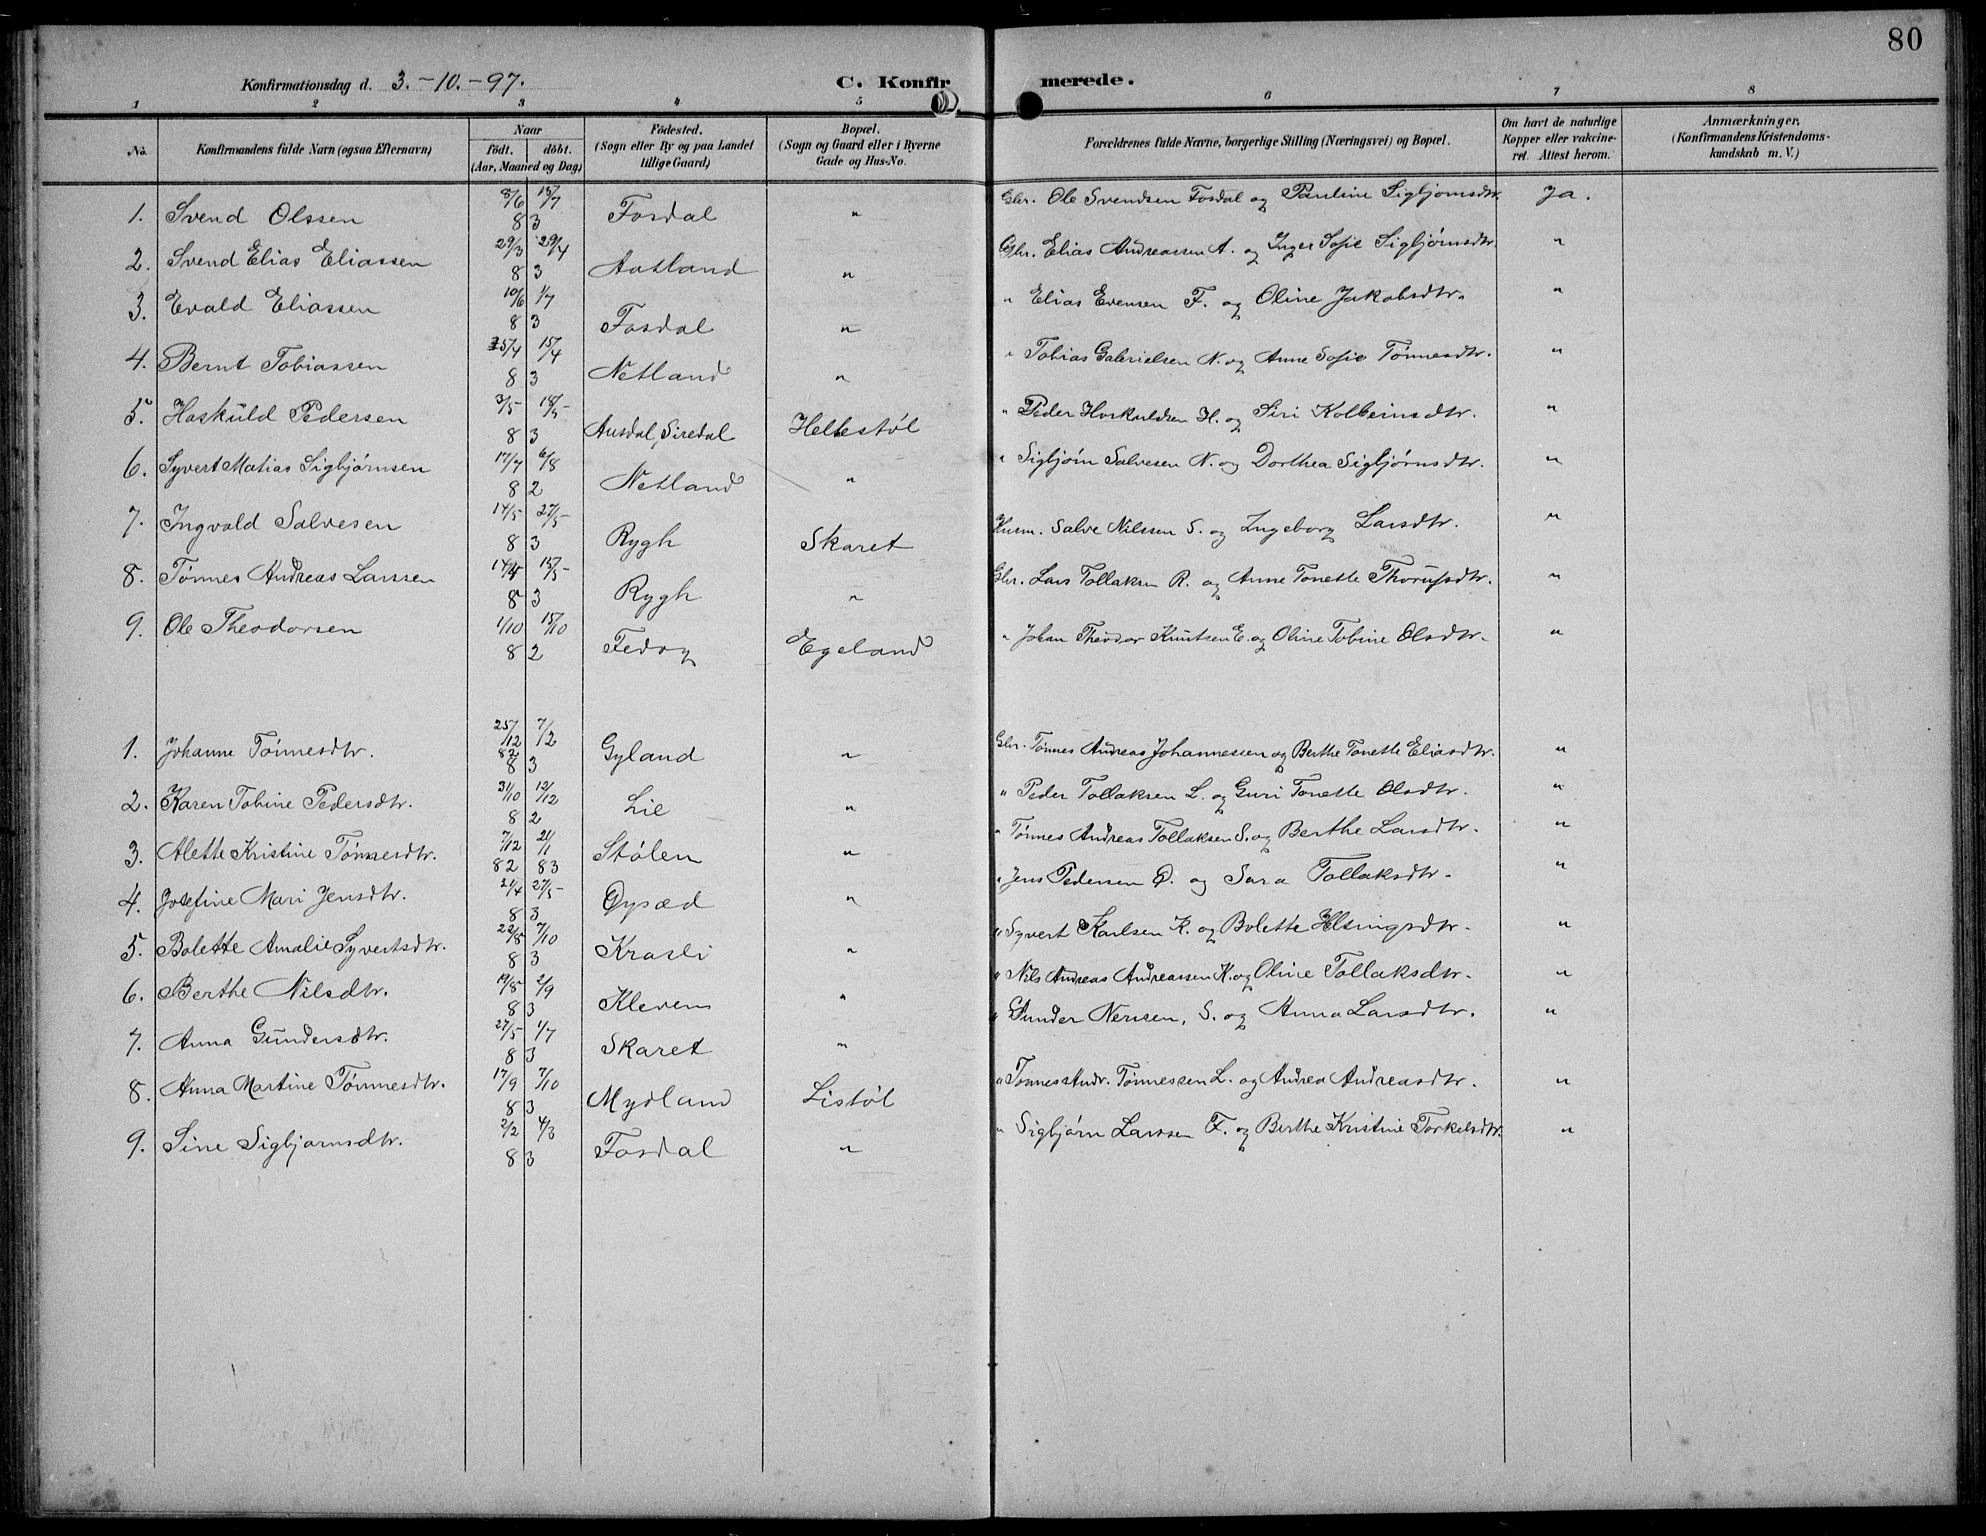 80
Konfirmationsdag d. 3.-10.-97.
C. Konfirmerede.
1 2 3 4 5 6 7 8
No.
Konfirmandens fulde Navn (ogsaa Efternavn)
Naar
födt. döbt.
(Aar, Maaned og Dag)
Födested.
(Sogn eller By og paa Landet
tillige Gaard)
Bopæl.
(Sogn og Gaard eller i Byerne
Gade og Hus-No.
Forældrenes fulde Navne, borgerlige Stilling (Næringsvei) og Bopæl.
Om havt de naturlige
Kopper eller vakcine-
ret. Attest herom.
Anmærkninger,
(Konfirmandens Kristendoms-
kundskab m. V.)
1. Svend Olssen 8/6 83 15/7 Fosdal " Gbr. Ole Svendsen Fosdal og Pauline Sigbjørnsdtr. Ja.
2. Svend Elias Eliassen 29/3 29/4 83 Aatland " Gbr. Elias Andreassen A. og Inger Sofie Sigbjørnsdtr. "
3. Evald Eliassen 10/6 1/7 83 Fosdal " " Elias Evensen F. og Oline Jakobsdtr. "
4. Bernt Tobiassen 5/4 15/4 83 Netland " " Tobias Gabrielsen N. og Anne Sofie Tønnesdtr. "
5. Haskuld Pedersen 3/5 18/5 83 Ausdal, Siredal Hellestøl " Peder Hoskuldsen H. og Siri Kolbeinsdtr. "
6. Syvert Matias Sigbjørnsen 17/7 6/8 82 Netland " " Sigbjørn Salvesen N. og Dorthea Sigbjørnsdtr. "
7. Ingvald Salvesen 14/5 27/5 83 Rygh Skaret Husm. Salve Nilssen S. og Ingeborg Larsdtr. "
8. Tønnes Andreas Larssen 14/4 15/5 83 Rygh " Gbr. Lars Tollaksen R. og Anne Tonette dtr. "
9. Ole Theodorsen 1/10 15/10 82 Fedog Egeland " Johan Theodor Knutsen E. og Oline Tobine Olsdtr. "
1. Johanne Tønnesdtr. 25/12 82 7/2 83 Gyland " Gbr. Tønnes Andreas Johannessen og Berthe Tonette Eliasdtr. "
2. Karen Tobine Pedersdtr. 31/10 12/12 82 Lie " " Peder Tollaksen L. og Guri Tonette Olsdtr. "
3. Alette Kristine Tønnesdtr. 7/12 82 21/1 83 Stølen " " Tønnes Andreas Tollaksen S. og Berthe Larsdtr. "
4. Josefine Mari Jensdtr. 21/4 27/5 83 Øysæd " " Jens Pedersen Ø. og Sara Tollaksdtr. "
5. Bolette Amalie Syvertsdtr. 22/8 7/10 83 Krasli " " Syvert Karlsen K. og Bolette Helsingsdtr. "
6. Berthe Nilsdtr. 19/8 2/9 83 Kleven " " Nils Andreas Andreassen K. og Oline Tollaksdtr. "
7. Anna Gundersdtr. 27/5 1/7 83 Skaret " " Gunder Nersen, S. og Anna Larsdtr. "
8. Anna Martine Tønnesdtr. 17/9 7/10 83 Mydland Listøl " Tønnes Andr. Tønnessen L. og Andrea Andreasdtr. "
9. Sine Sigbjørnsdtr. 2/2 4/3 83 Fosdal " " Sigbjørn Larssen F. og Berthe Kristine Torkelsdtr. "